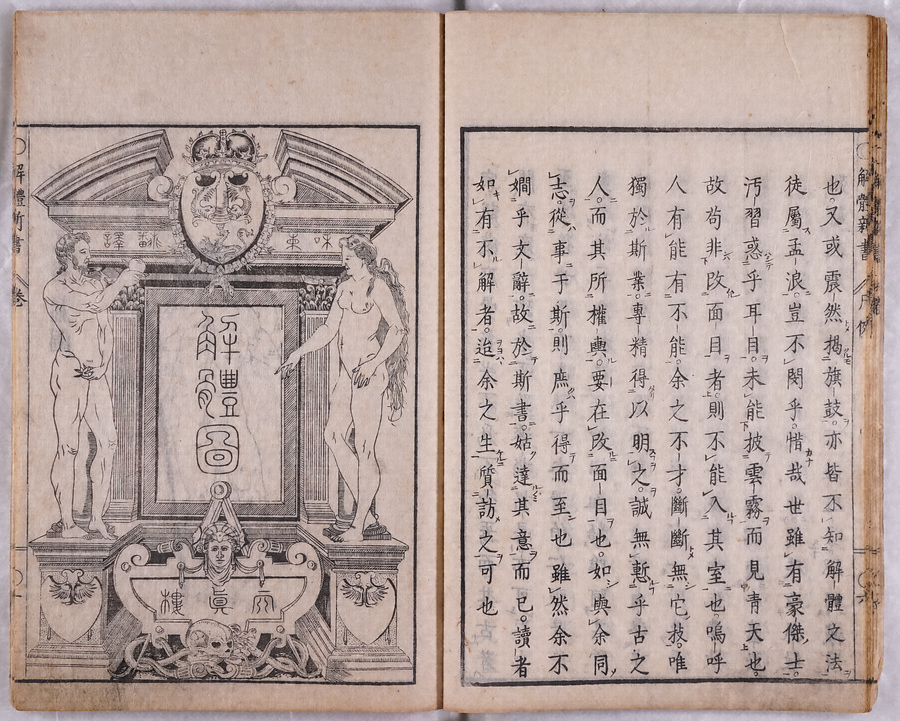 也。又或震然揭旗鼓。亦皆不知解體之法
徒屬孟浪。豈不閔乎。惜哉世雖有豪傑士。
汚習惑乎耳目。未能披雲霧而見青天也。
故苟非改面目者。則不能入其室也。嗚呼
人有能有不能。余之不才。斷斷無它技。唯
獨於斯業。專精得以明之。誠無慙乎古之
人。而其所權輿。要在改面目也。如與余同
志。從事于斯。則庶乎得而至也雖然余不
嫺乎文辭。故於斯書。姑達其意而已。讀者
如有不解者。迨余之生質訪之可也
解體新書 凡例
解體圖
解體新書 卷